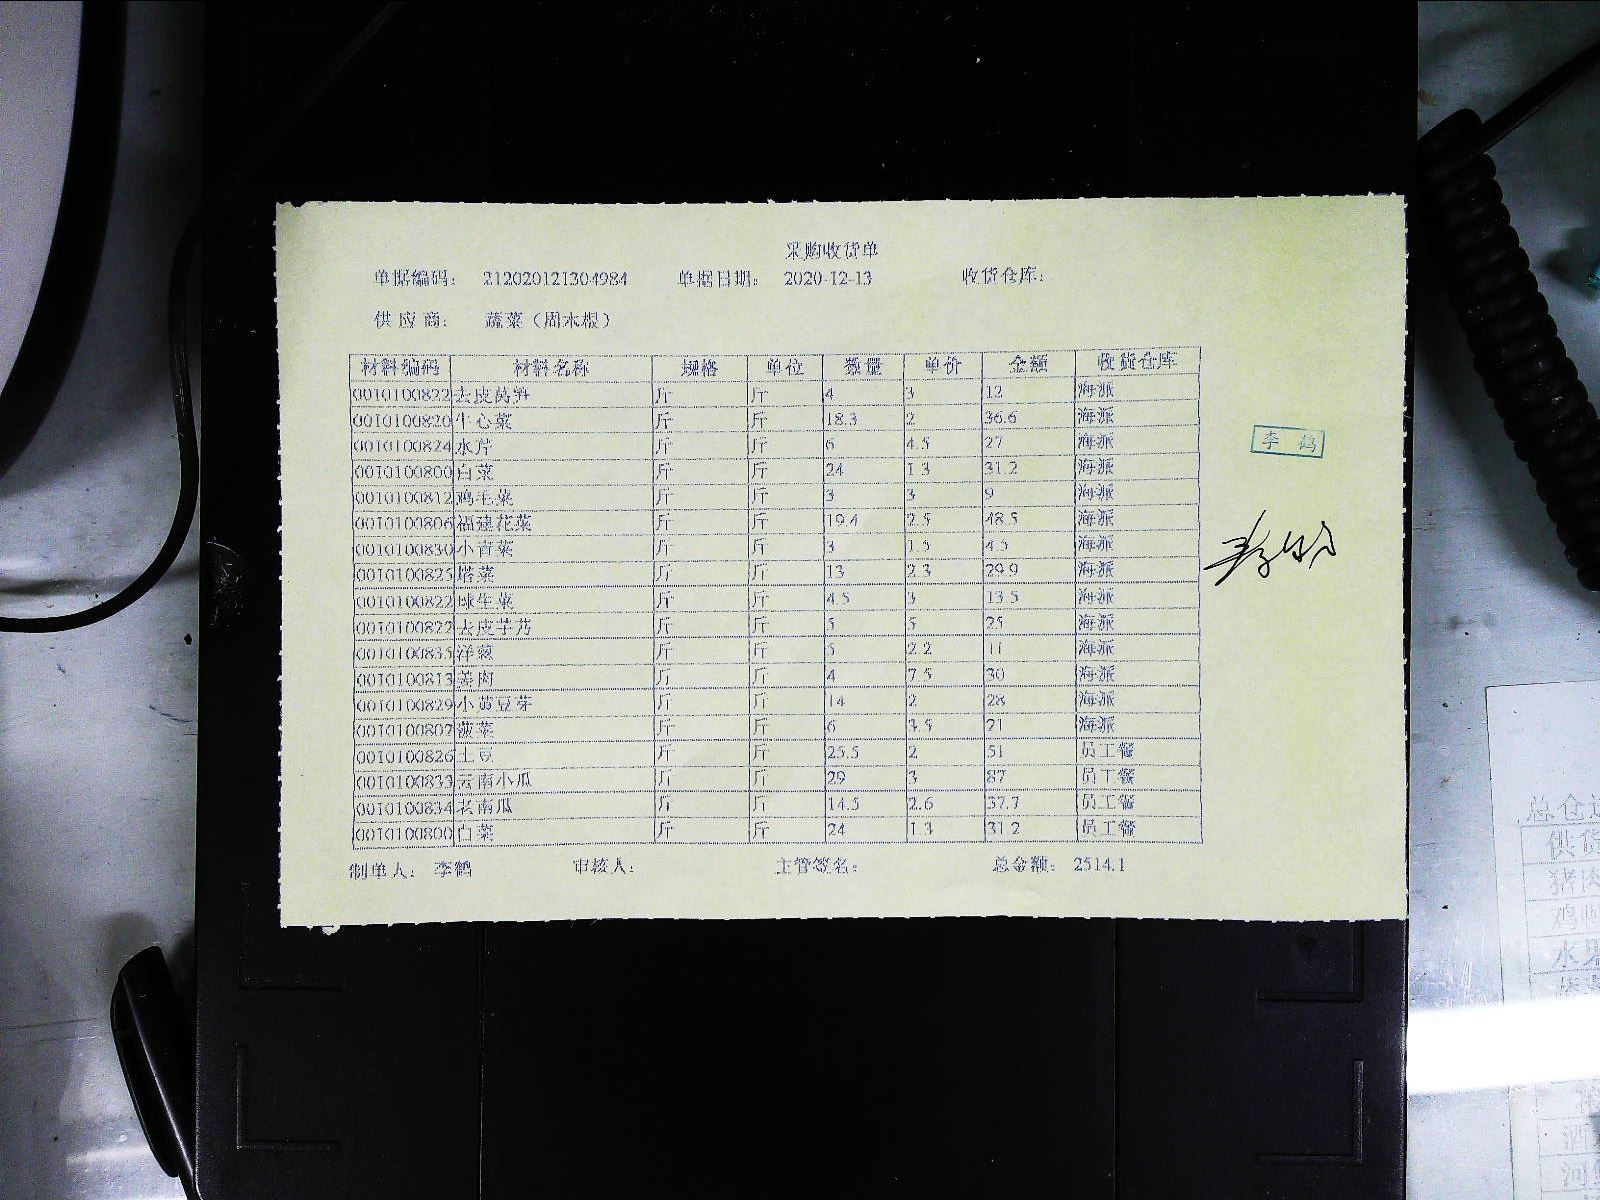 采购收货单
单据编码： 212020121304984 单据日期： 2020-12-13 收货仓库：
供 应 商： 蔬菜（周木根）
材料编码 材料名称 规格 单位 数量 单价 金额 收货仓库
0010100822 去皮莴笋 斤 斤 4 3 12 海派
0010100820 牛心菜 斤 斤 18.3 2 36.6 海派
0010100824 水芹 斤 斤 6 4.5 27 海派
0010100800 白菜 斤 斤 24 1.3 31.2 海派
0010100812 鸡毛菜 斤 斤 3 3 9 海派
0010100806 福建花菜 斤 斤 19.4 2.5 48.5 海派
0010100830 小青菜 斤 斤 3 1.5 4.5 海派
0010100825 塔菜 斤 斤 13 2.3 29.9 海派
0010100822 球生菜 斤 斤 4.5 3 13.5 海派
0010100822 去皮芋艿 斤 斤 5 5 25 海派
0010100835 洋葱 斤 斤 5 2.2 11 海派
0010100813 姜肉 斤 斤 4 7.5 30 海派
0010100829 小黄豆芽 斤 斤 14 2 28 海派
0010100807 菠菜 斤 斤 6 3.5 21 海派
0010100826 土豆 斤 斤 25.5 2 51 员工餐
0010100833 云南小瓜 斤 斤 29 3 87 员工餐
0010100834 老南瓜 斤 斤 14.5 2.6 37.7 员工餐
0010100800 白菜 斤 斤 24 1.3 31.2 员工餐
制单人： 李鹤 审核人： 主管签名： 总金额： 2514.1
李 鹤
李鹤
总仓
供货
猪肉
水果